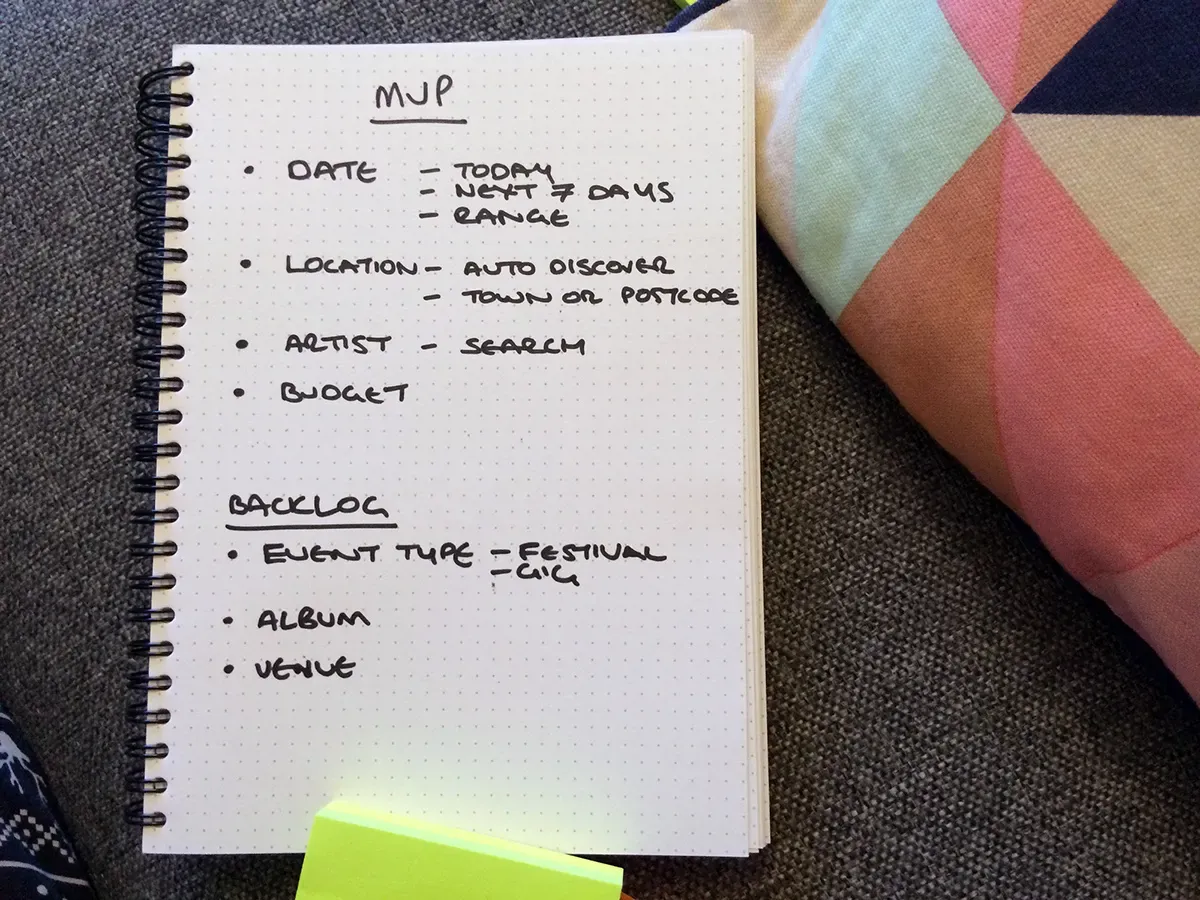 MVP
• DATE – TODAY
– NEXT 7 DAYS
– RANGE
• LOCATION – AUTO DISCOVER
– TOWN OR POSTCODE
• ARTIST – SEARCH
• BUDGET
BACKLOG
• EVENT TYPE – FESTIVAL
– GIG
• ALBUM
• VENUE